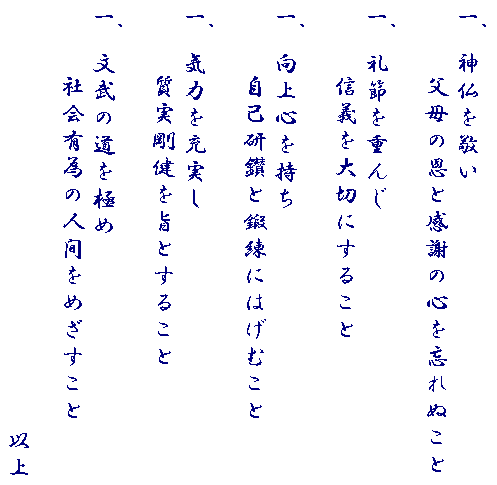 一、神仏を敬い
父母の恩と感謝の心を忘れぬこと
一、礼節を重んじ
信義を大切にすること
一、向上心を持ち
自己研鑽と鍛練にはげむこと
一、気力を充実し
質実剛健を旨とすること
一、文武の道を極め
社会有為の人间をめざすこと
以上